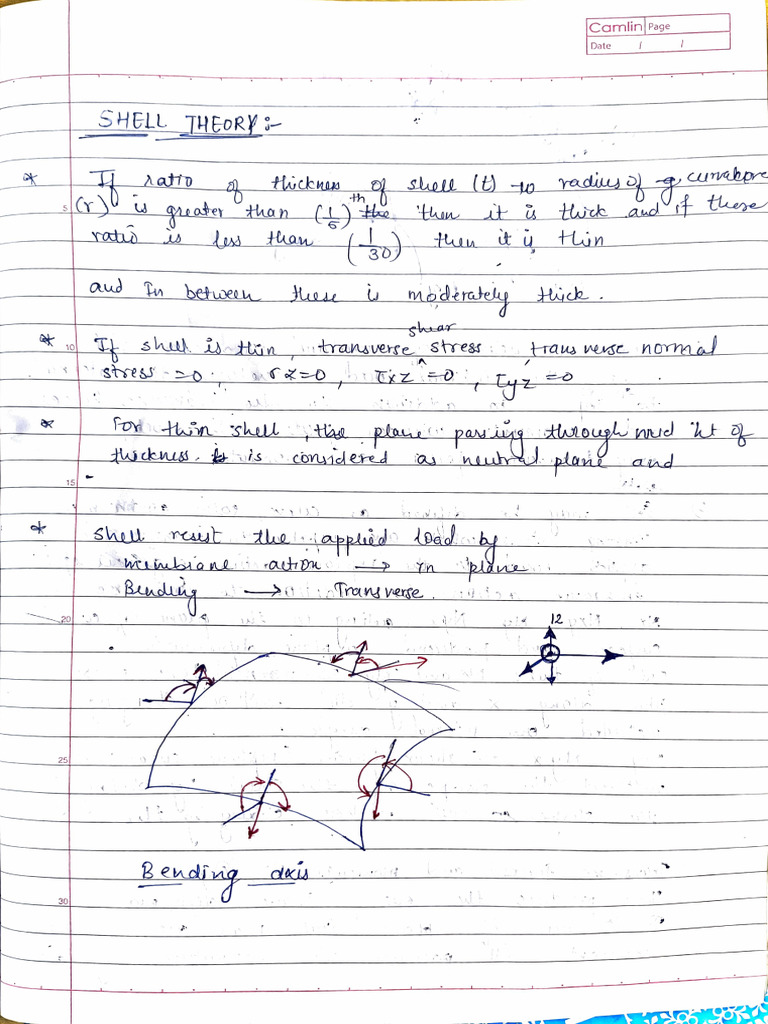 Camlin Page
Date / /
SHELL THEORY:-
* If ratio of thickness of shell (t) to radius of curvature
5
(r) is greater than (1/5)th then it is thick and if these
ratio is less than (1/30) then it is thin
and In between these is moderately thick.
* 10 If shell is thin, transverse shear stress, transverse normal
stress =0, σz=0, τxz =0, τyz =0
* For thin shell, the plane passing through mid ht of
thickness is considered as neutral plane and
15 -
* Shell resist the applied load by
membrane action → in plane
Bending → Transverse.
20
12
25
Bending axis
30